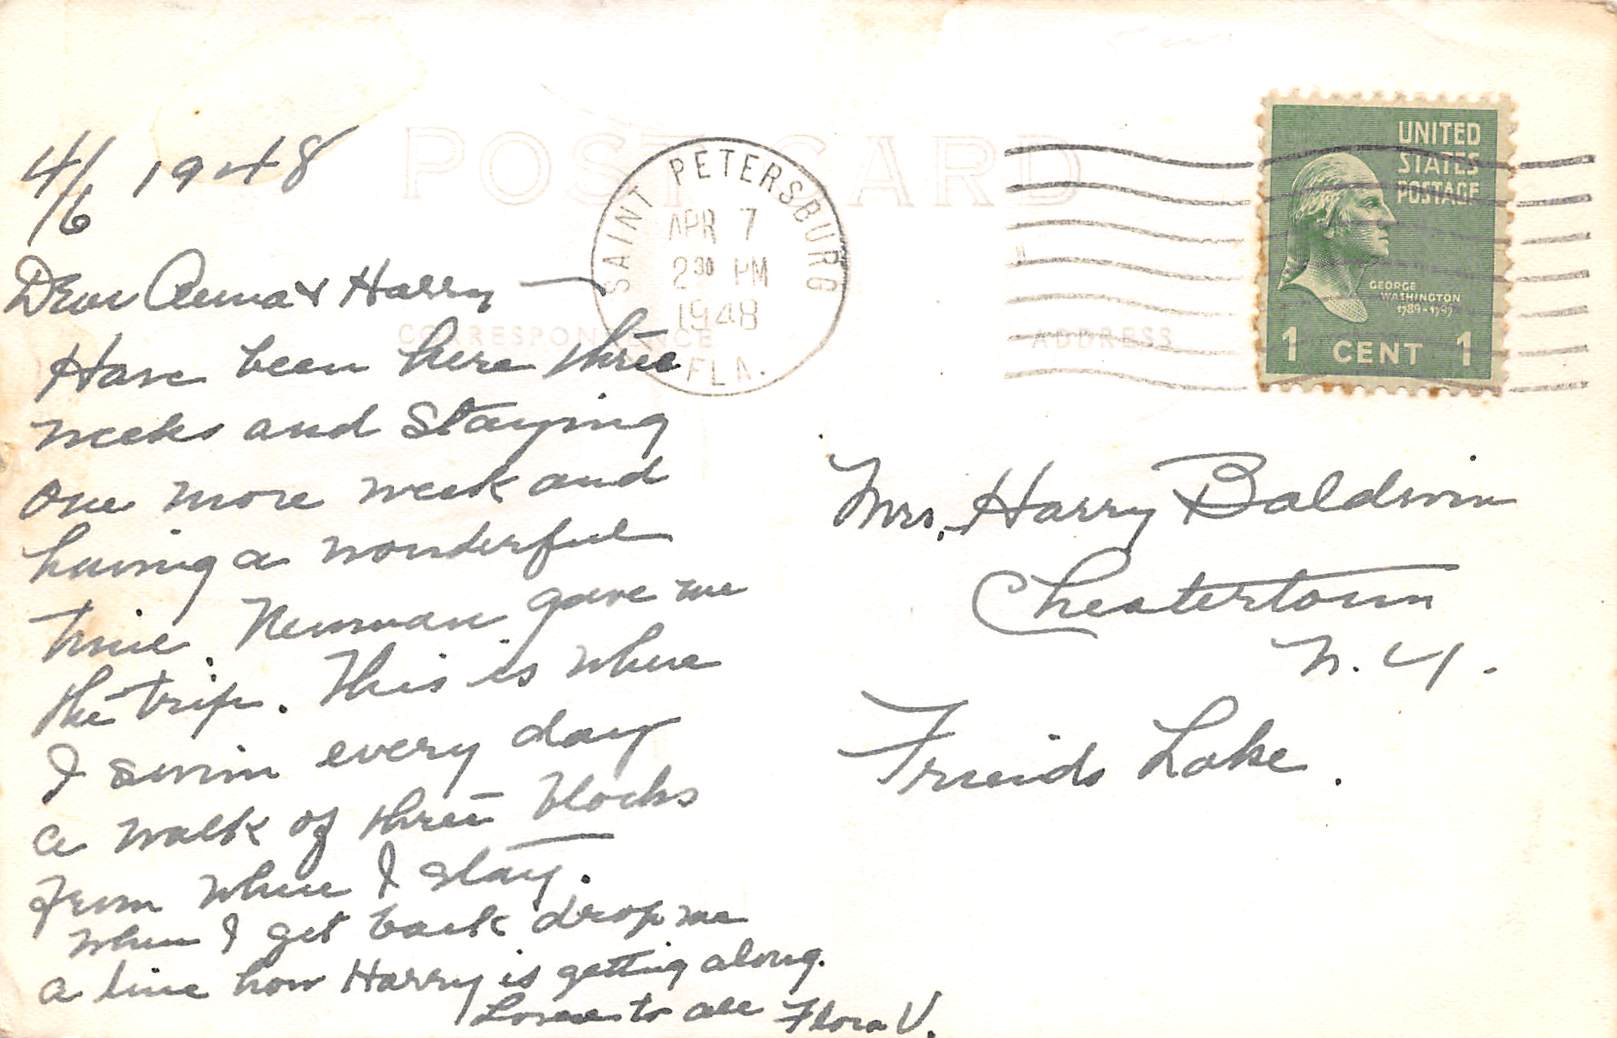 POST CARD
4/6 1948
SAINT PETERSBURG
APR 7
2 30 PM
1948
FLA.
UNITED
STATES
POSTAGE
GEORGE
WASHINGTON
1789-1797
1 CENT 1
CORRESPONDENCE
ADDRESS
Dear Anna & Harry —
Have been here three
weeks and staying
one more week and
having a wonderful
time. Newman gave me
the trip. This is where
I swim every day
a walk of three blocks
from where I stay.
When I get back drop me
a line how Harry is getting along.
Love to all Flora V.
Mrs. Harry Baldwin
Chestertown
N.Y.
Friends Lake.